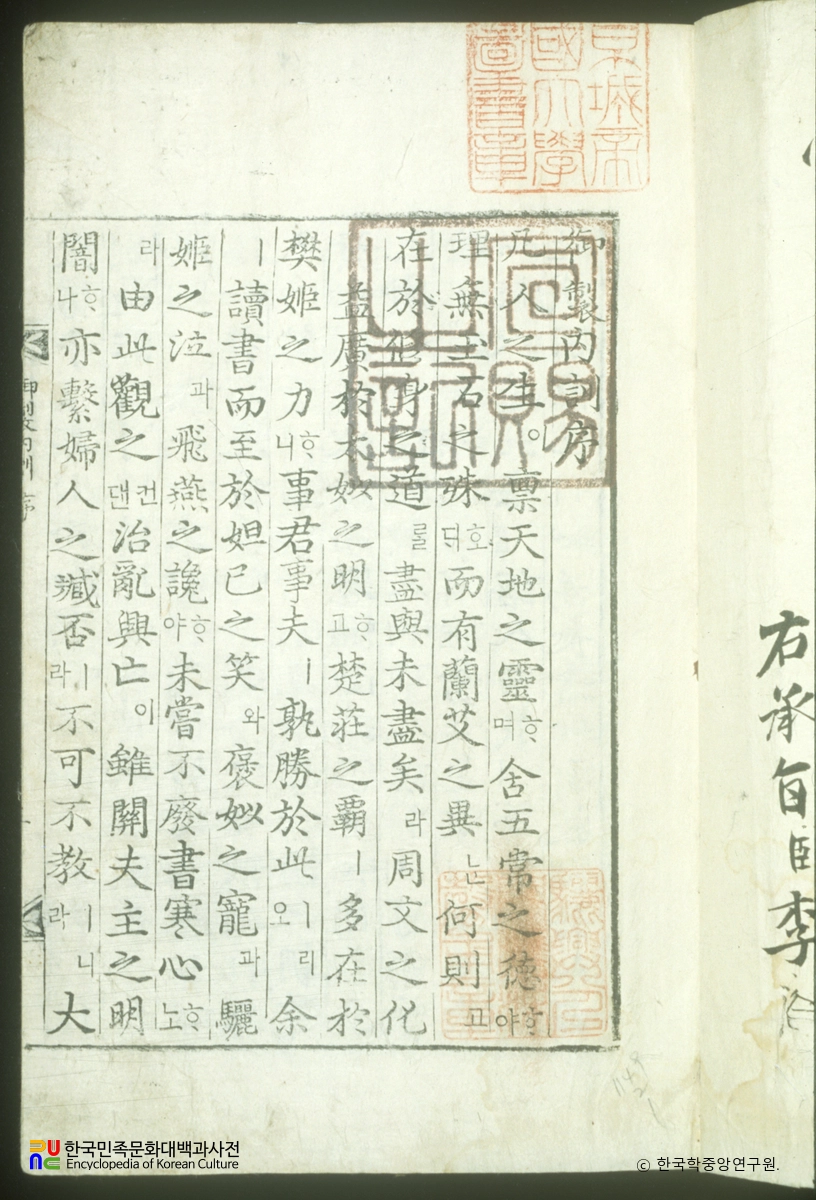 右承旨臣李
京城帝
國大學
圖書章
宣賜
之記
御製内訓序
凡人之生。禀天地之靈ᄒᆞ며舍五常之德ᄒᆞ야
理無玉石之殊호ᄃᆡ而有蘭艾之異ᄂᆞᆫ何則고
在於修身之道ᄅᆞᆯ盡與未盡矣라周文之化
益廣於太姒之明ᄒᆞ고楚莊之覇ㅣ多在於
樊姬之力ᄒᆞ니事君事夫ㅣ孰勝於此ㅣ리오余
ㅣ讀書而至於妲己之笑와褒姒之寵과驪
姬之泣과飛燕之讒ᄒᆞ야未嘗不廢書寒心ᄒᆞ노
라由此觀之컨댄治亂興亡이雖關夫主之明
闇ᄒᆞ나亦繫婦人之臧否ㅣ라不可不教ㅣ니라大
御製内訓 序
한국민족문화대백과사전
Encyclopedia of Korean Culture
© 한국학중앙연구원.